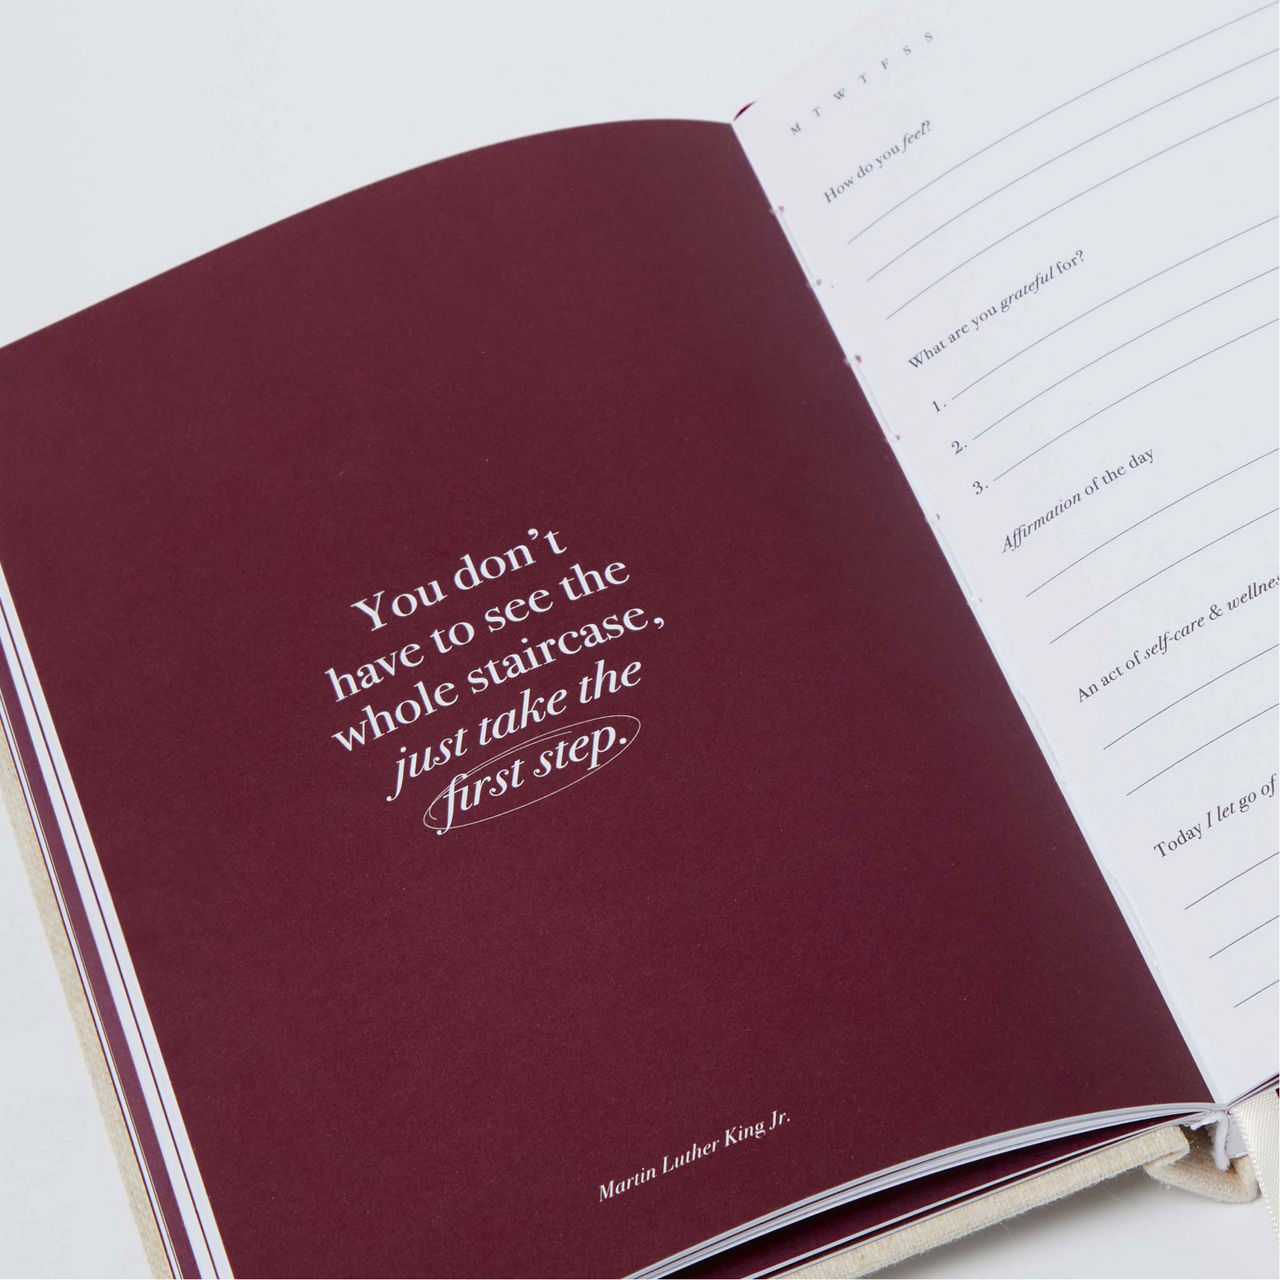 You don't
have to see the
whole staircase,
just take the
first step.
Martin Luther King Jr.
M T W T F S S
How do you feel?
What are you grateful for?
1.
2.
3.
Affirmation of the day
An act of self-care & wellnes
Today I let go of